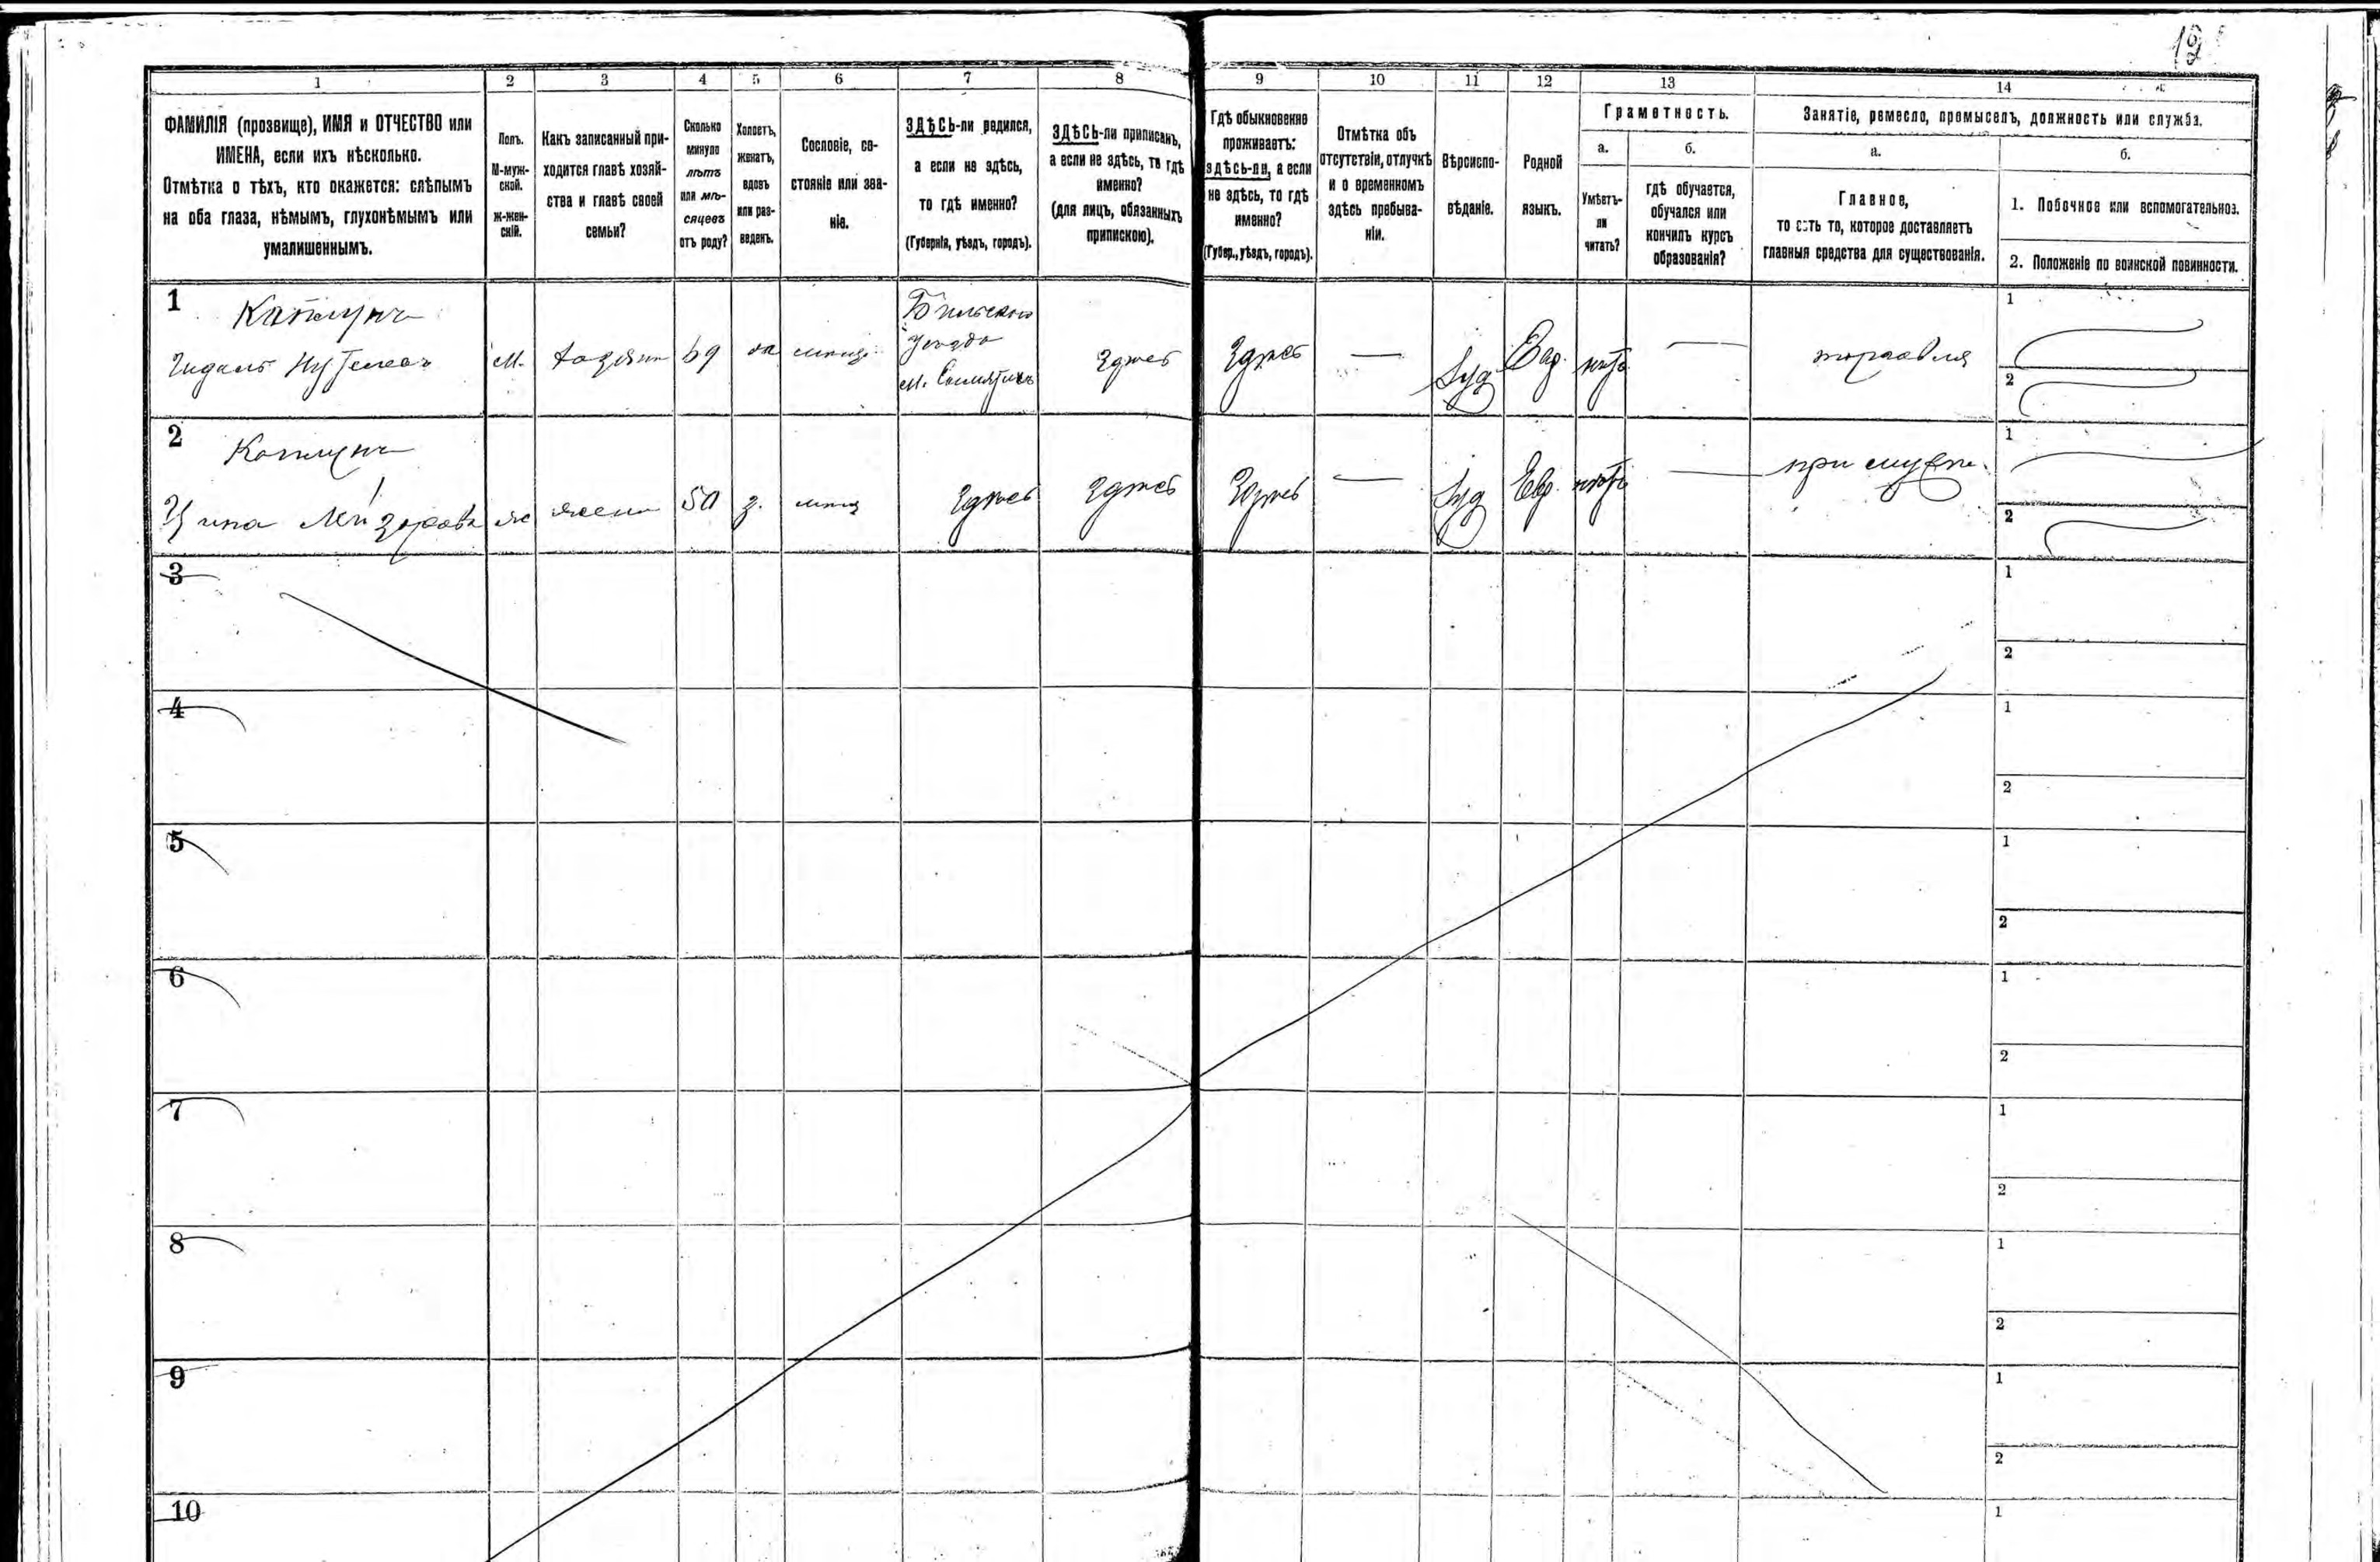 19
1
2
3
4
5
6
7
8
9
10
11
12
13
14
ФАМИЛІЯ (прозвище), ИМЯ и ОТЧЕСТВО или
ИМЕНА, если ихъ нѣсколько.
Отмѣтка о тѣхъ, кто окажется: слѣпымъ
на оба глаза, нѣмымъ, глухонѣмымъ или
умалишеннымъ.
Полъ.
М-муж-
ской.
ж-жен-
скій.
Какъ записанный при-
ходится главѣ хозяй-
ства и главѣ своей
семьи?
Сколько
минуло
лѣтъ
или мѣ-
сяцевъ
отъ роду?
Холостъ,
женатъ,
вдовъ
или раз-
веденъ.
Сословіе, со-
стояніе или зва-
ніе.
ЗДѢСЬ-ли родился,
а если не здѣсь,
то гдѣ именно?
(Губернія, уѣздъ, городъ).
ЗДѢСЬ-ли приписанъ,
а если не здѣсь, то гдѣ
именно?
(для лицъ, обязанныхъ
припискою).
Гдѣ обыкновенно
проживаетъ:
здѣсь-ли, а если
не здѣсь, то гдѣ
именно?
(Губер., уѣздъ, городъ).
Отмѣтка объ
отсутствіи, отлучкѣ
и о временномъ
здѣсь пребыва-
ніи.
Вѣроиспо-
вѣданіе.
Родной
языкъ.
Грамотность.
а.
Умѣетъ-
ли
читать?
б.
гдѣ обучается,
обучался или
кончилъ курсъ
образованія?
Занятіе, ремесло, промыселъ, должность или служба.
а.
Главное,
то есть то, которое доставляетъ
главныя средства для существованія.
б.
1. Побочное или вспомогательное.
2. Положеніе по воинской повинности.
1
Каплунъ
М.
69
Бѣльскаго
уѣзда
здѣсь
здѣсь
—
Іуд
Евр.
нѣтъ
—
торговля
1
2
2
Каплунъ
ж
жена
50
з.
здѣсь
здѣсь
здѣсь
—
Іуд
Евр.
нѣтъ
—
при мужѣ
1
2
3
1
2
4
1
2
5
1
2
6
1
2
7
1
2
8
1
2
9
1
2
10
1